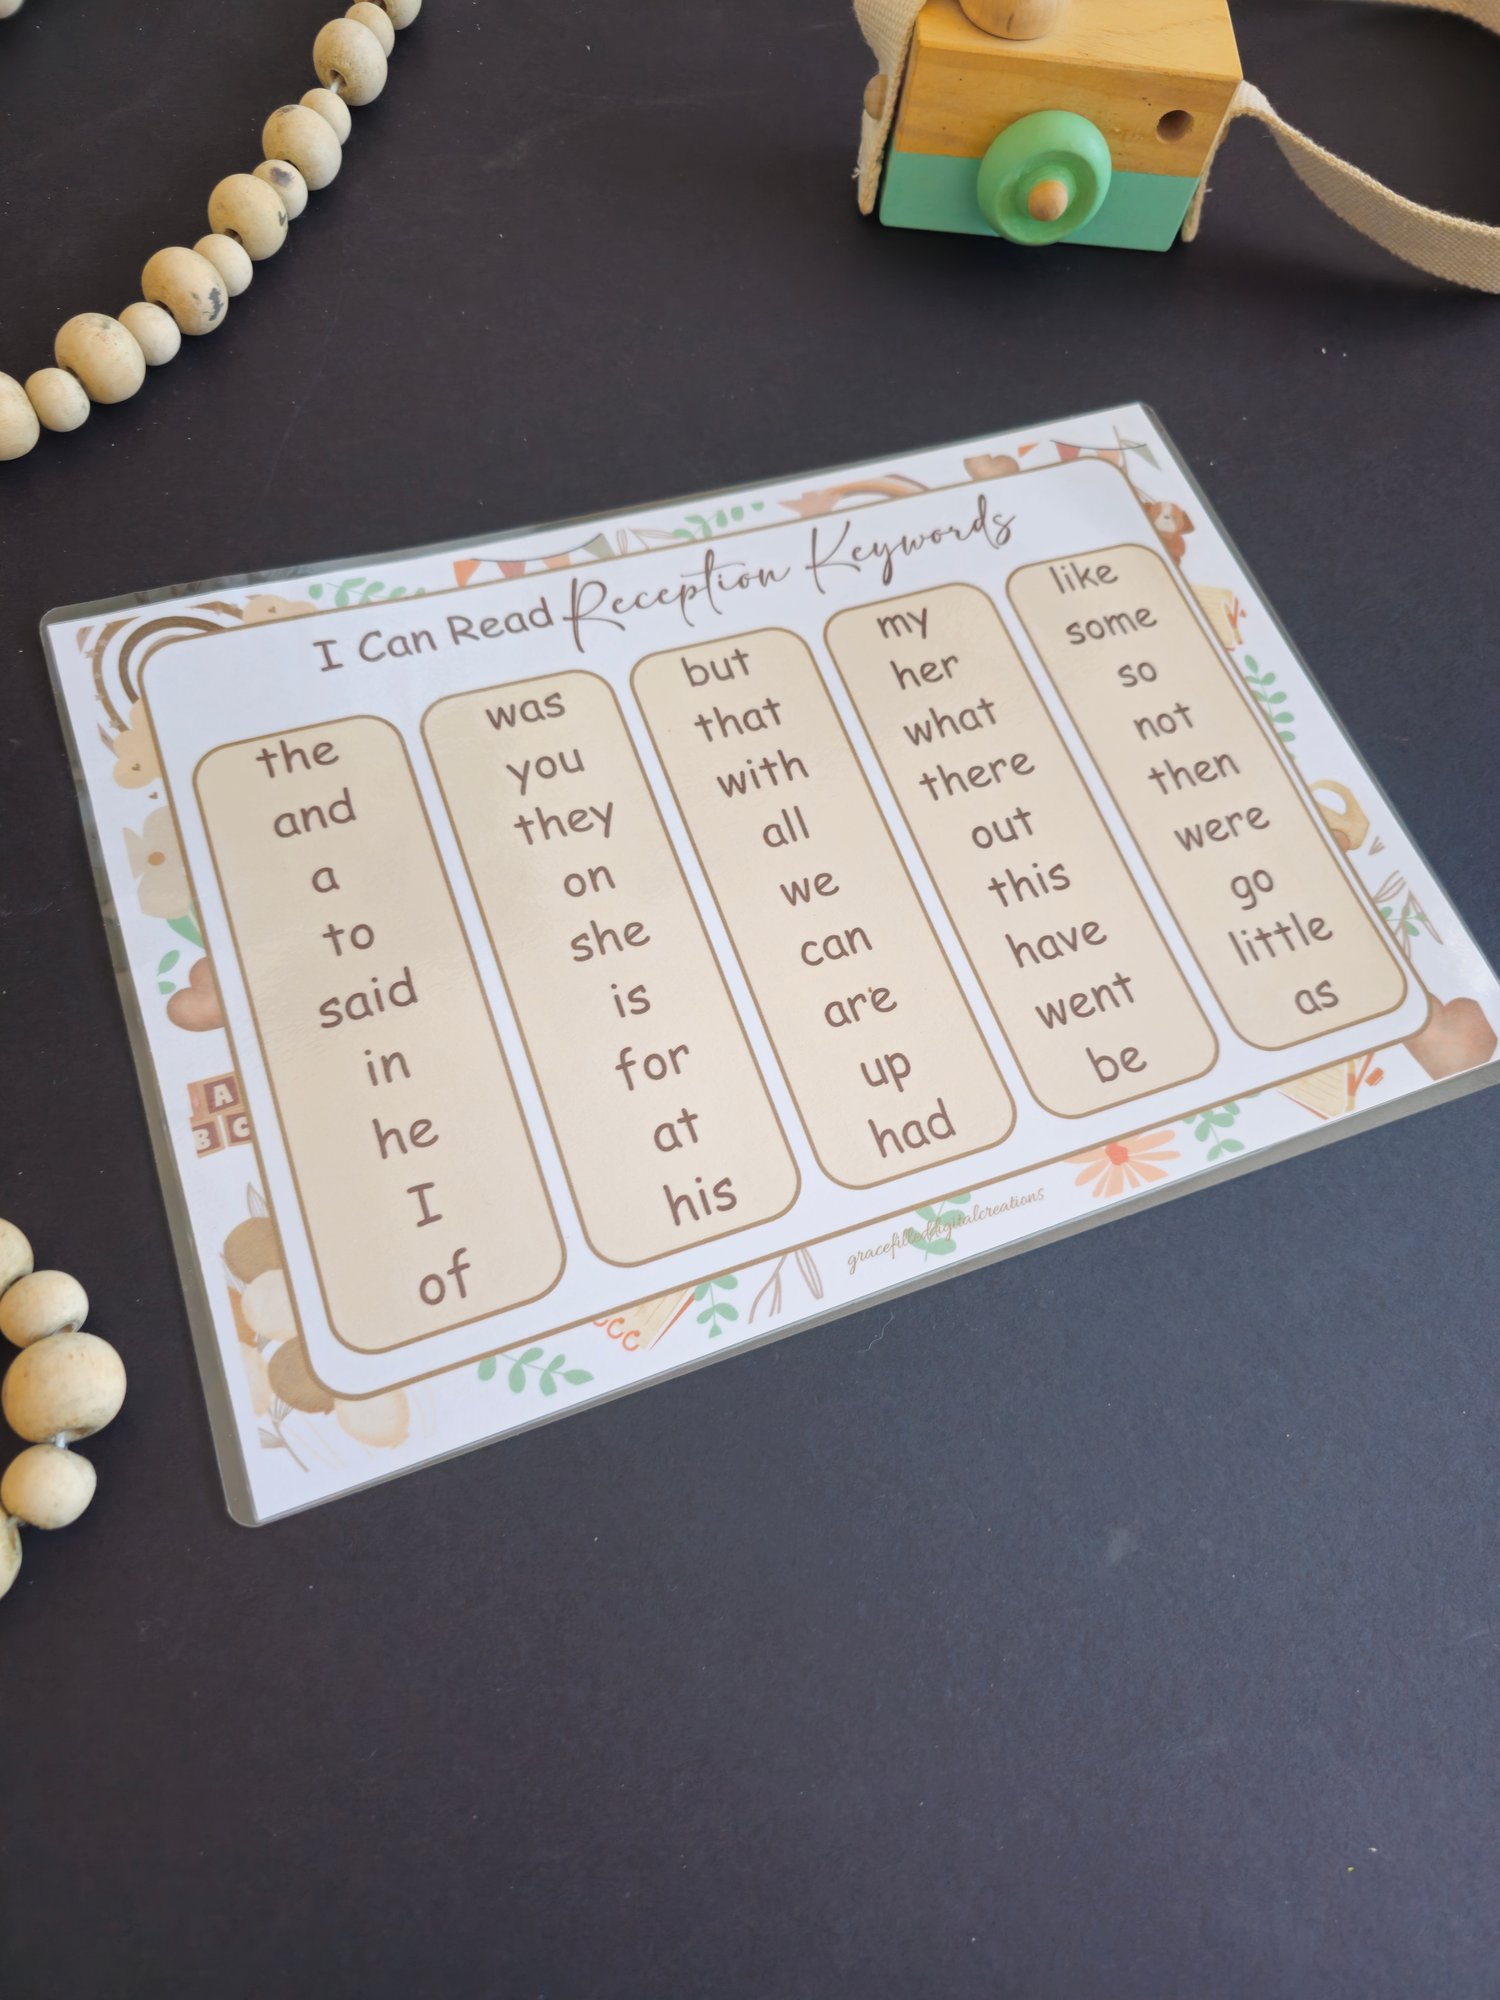 I Can Read Reception Keywords
the
and
a
to
said
in
he
I
of
was
you
they
on
she
is
for
at
his
but
that
with
all
we
can
are
up
had
my
her
what
there
out
this
have
went
be
like
some
so
not
then
were
go
little
as
A
B C
gracefilleddigitalcreations